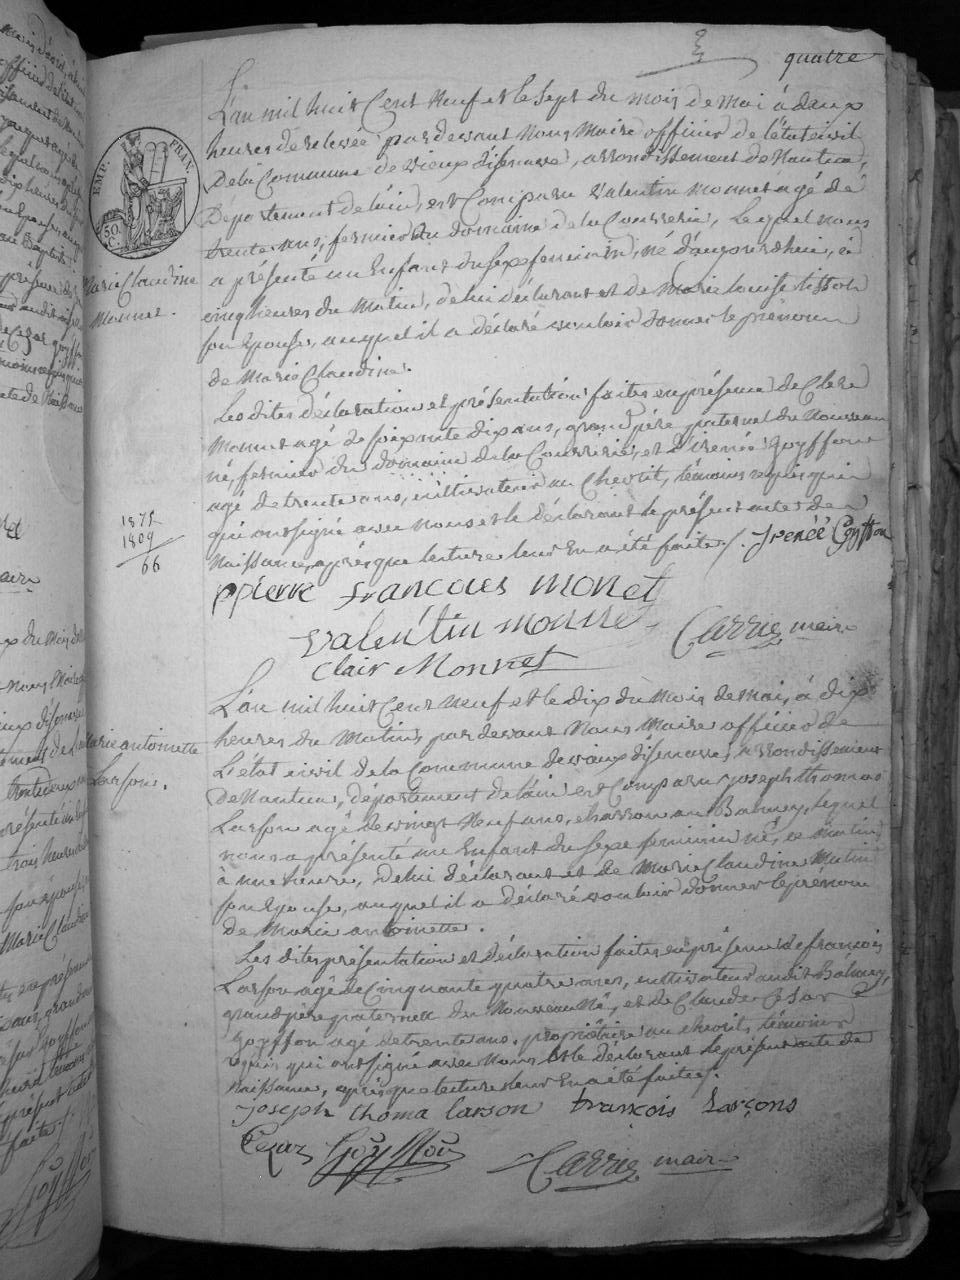 quatre
L'an mil huit Cent Neuf et le sept du mois de mai à deux
heures de relevée pardevant Nous Maire officier de l'état civil
De la Commune de vieux d'isenave, arrondissement de Nantua,
Département de l'ain, est Comparu Valentin Monnet agé de
trente ans, fermier du domaine de la Courrerie, Lequel nous
a présenté un Enfant du sexe feminin, né d'aujourdhui, à
cinq heures du Matin, de lui déclarant et de Marie Louise
son Epouse, auquel il a déclaré vouloir donner le prénom
de Marie Claudine.
Les dites déclaration et présentation faites en présence de Claire
Monnet agé de soixante dix ans, grand père paternel du Nouveau
né, fermier du domaine de la Courrerie, et d'irenée Goyffon
agé de trente ans, cultivateur au Chevril, témoins requis
qui ont signé avec Nous et le déclarant le présent acte de
Naissance, après que lecture leur En a été faite /. Irenée Goyffon
EMP. FRAN.
50. C.
Marie Claudine
Monnet.
1875
1809
66
pierre francoies monet
valentin monnet Carrier maire
Clair Monnet
L'an mil huit Cent Neuf et le dix du Mois de mai, à dix
heures du Matin, pardevant Nous Maire officier de
L'état civil de la Commune de vieux d'isenave, arrondissement
de Nantua, département de l'ain est Comparu Joseph thomas
Larson agé de vingt Neuf ans, charron au Balmey, Lequel
nous a présenté un Enfant du sexe feminin né, ce Matin,
à une heure, De lui déclarant et de Marie Claudine Matin
son Epouse, auquel il a déclaré vouloir donner le prénom
de Marie antoinette.
Marie antoinette
Larson.
Les dites présentation et déclaration faites en présence de françois
Larson agé de Cinquante quatre ans, cultivateur audit
grand père paternel du Nouveau Né, et de Claude Cesar
Goyffon agé de trente ans, propriétaire au chevril, témoins
requis qui ont signé avec Nous Et le déclarant le présent acte de
Naissance, après que lecture leur En a été faite /.
Joseph thoma larson francois Larçons
Cezar Goÿffon Carrier maire